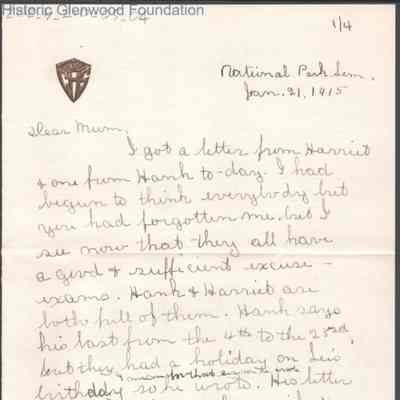 Historic Glenwood Foundation
1/4
National Park Sem.
Jan. 21, 1915
Dear Mum,
I got a letter from Harriet
& one from Hank to-day. I had
begun to think everybody but
you had forgotten me, but I
see now that they all have
a good & sufficient excuse –
exams. Hank & Harriet are
both full of them. Hank says
his last from the 4th to the 23rd,
but they had a holiday on Lee's
birthday so he wrote. His letter